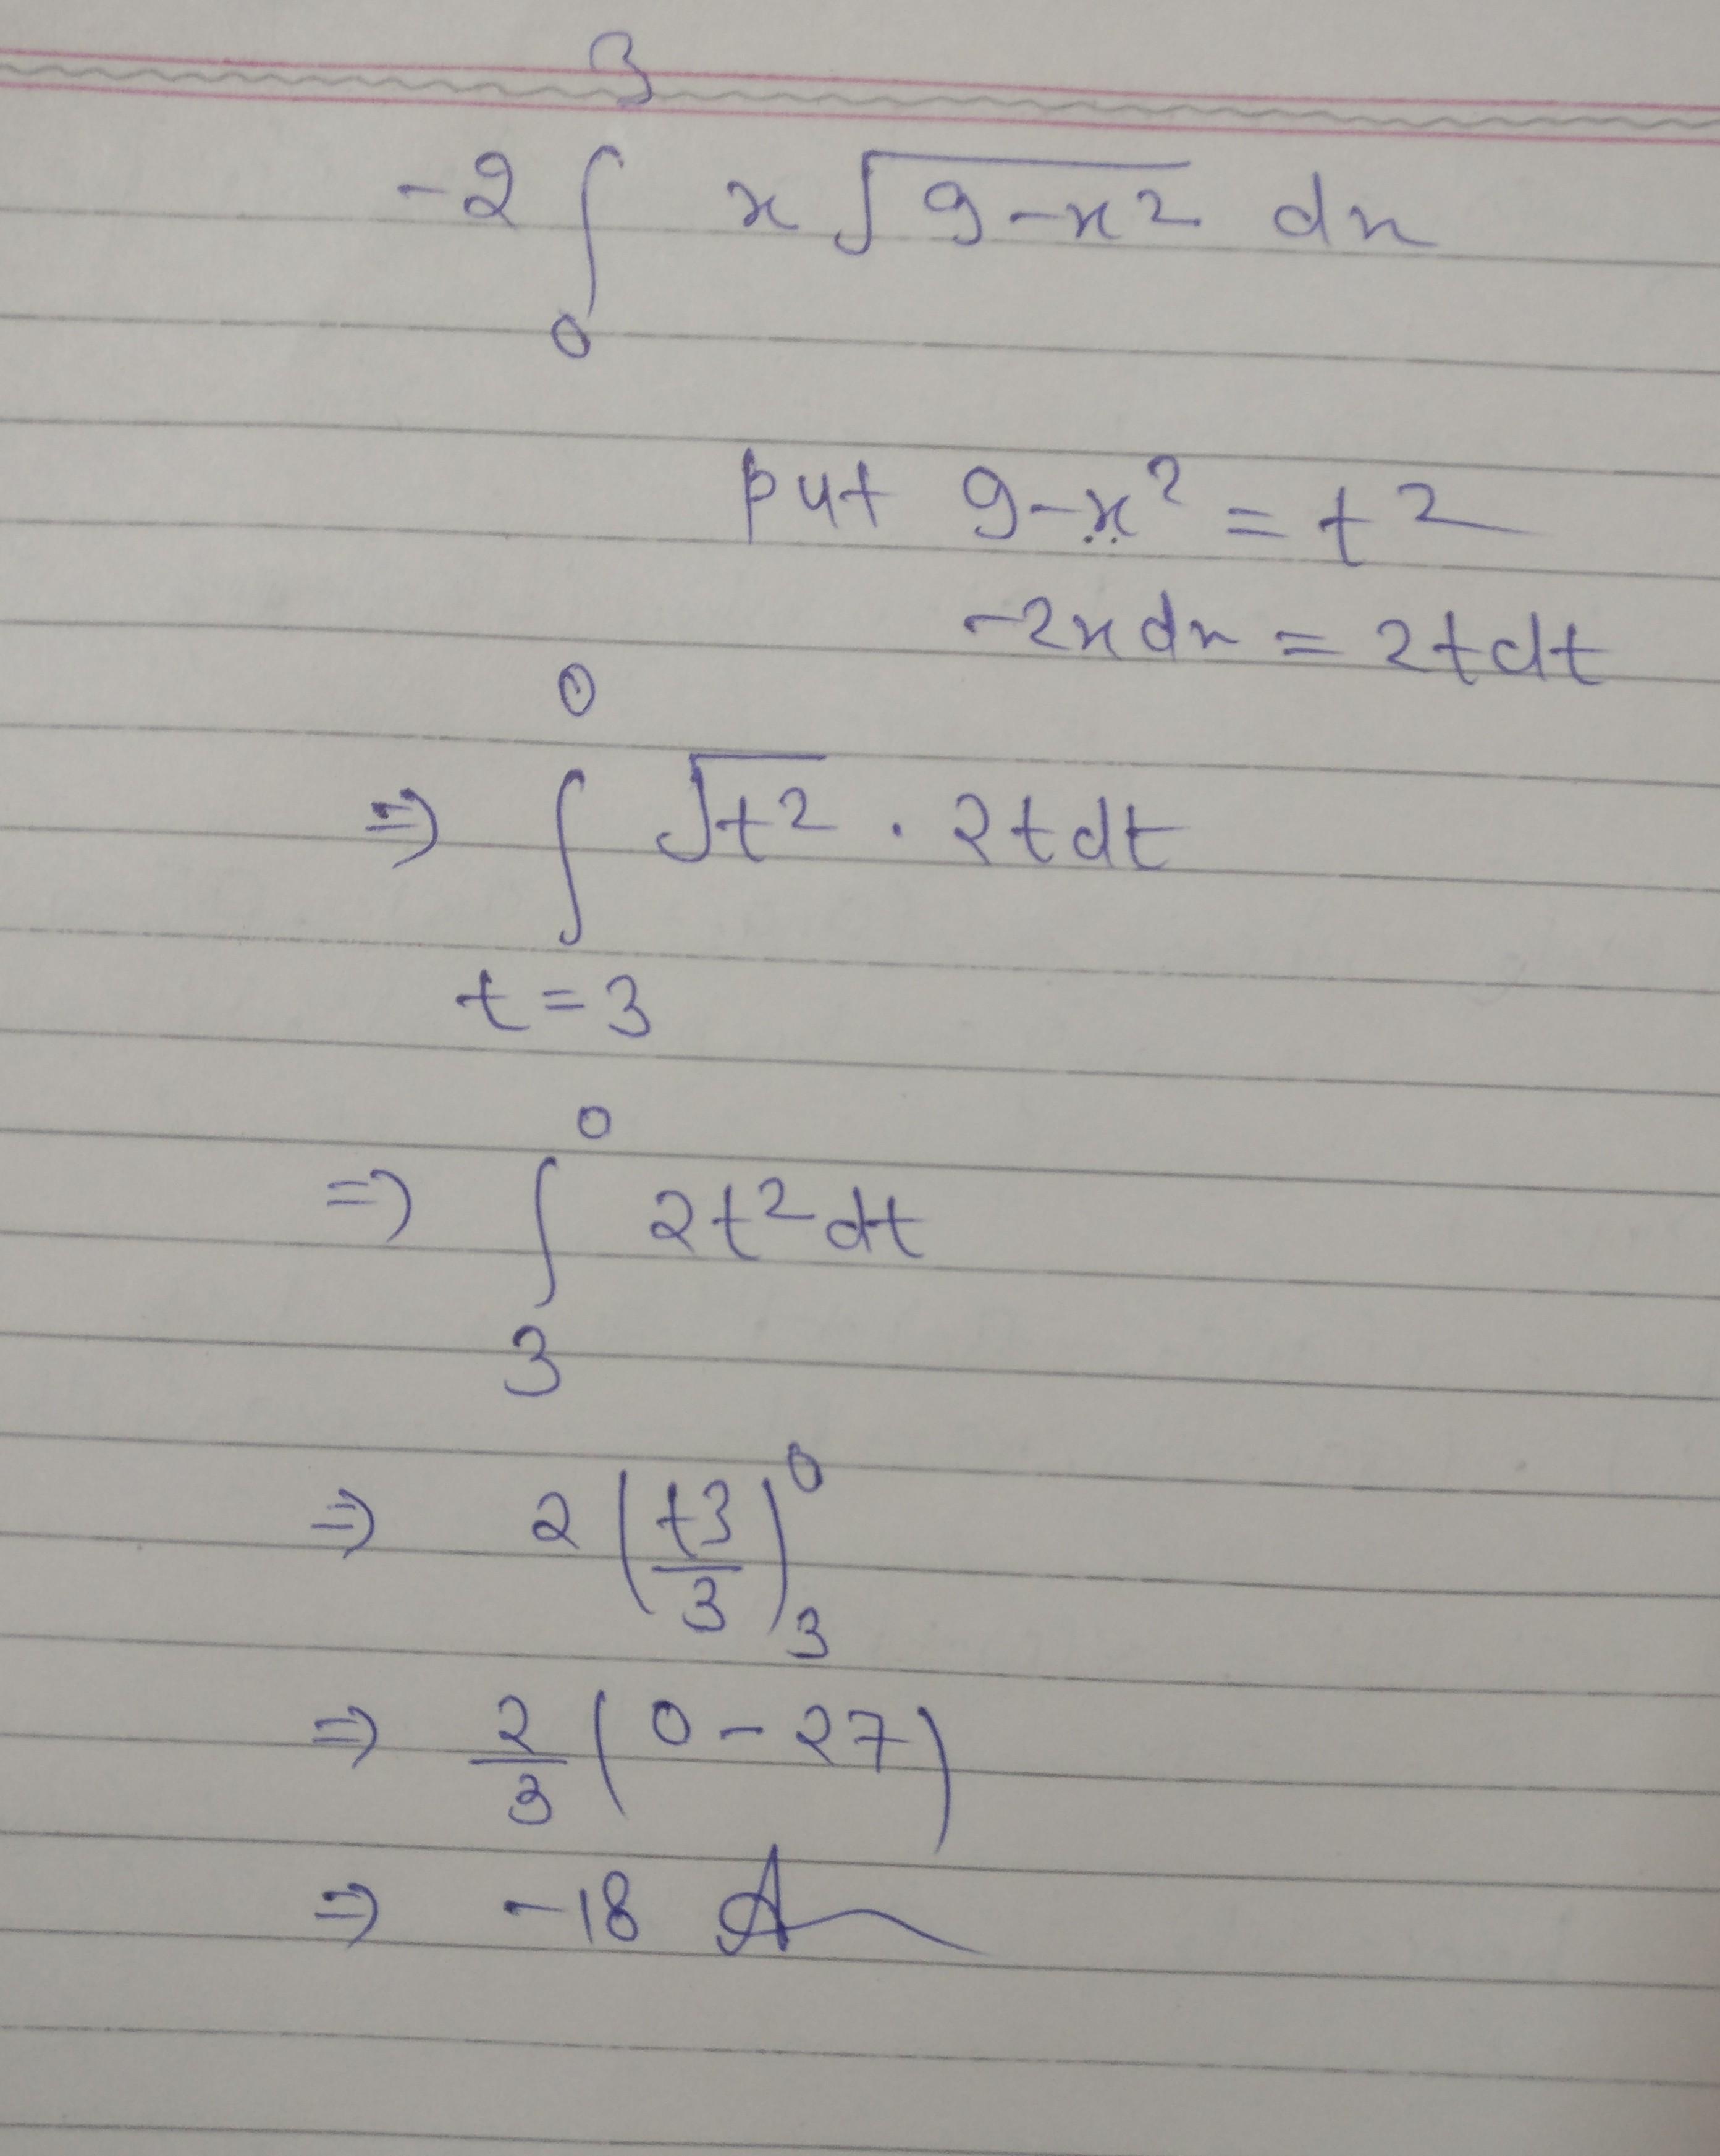 -2 ∫₀³ x √(9-x²) dx
put 9-x² = t²
-2x dx = 2t dt
⇒ ∫_{t=3}^{0} √(t²) . 2t dt
⇒ ∫₃⁰ 2t² dt
⇒ 2 (t³/3)₃⁰
⇒ 2/3 (0 - 27)
⇒ -18